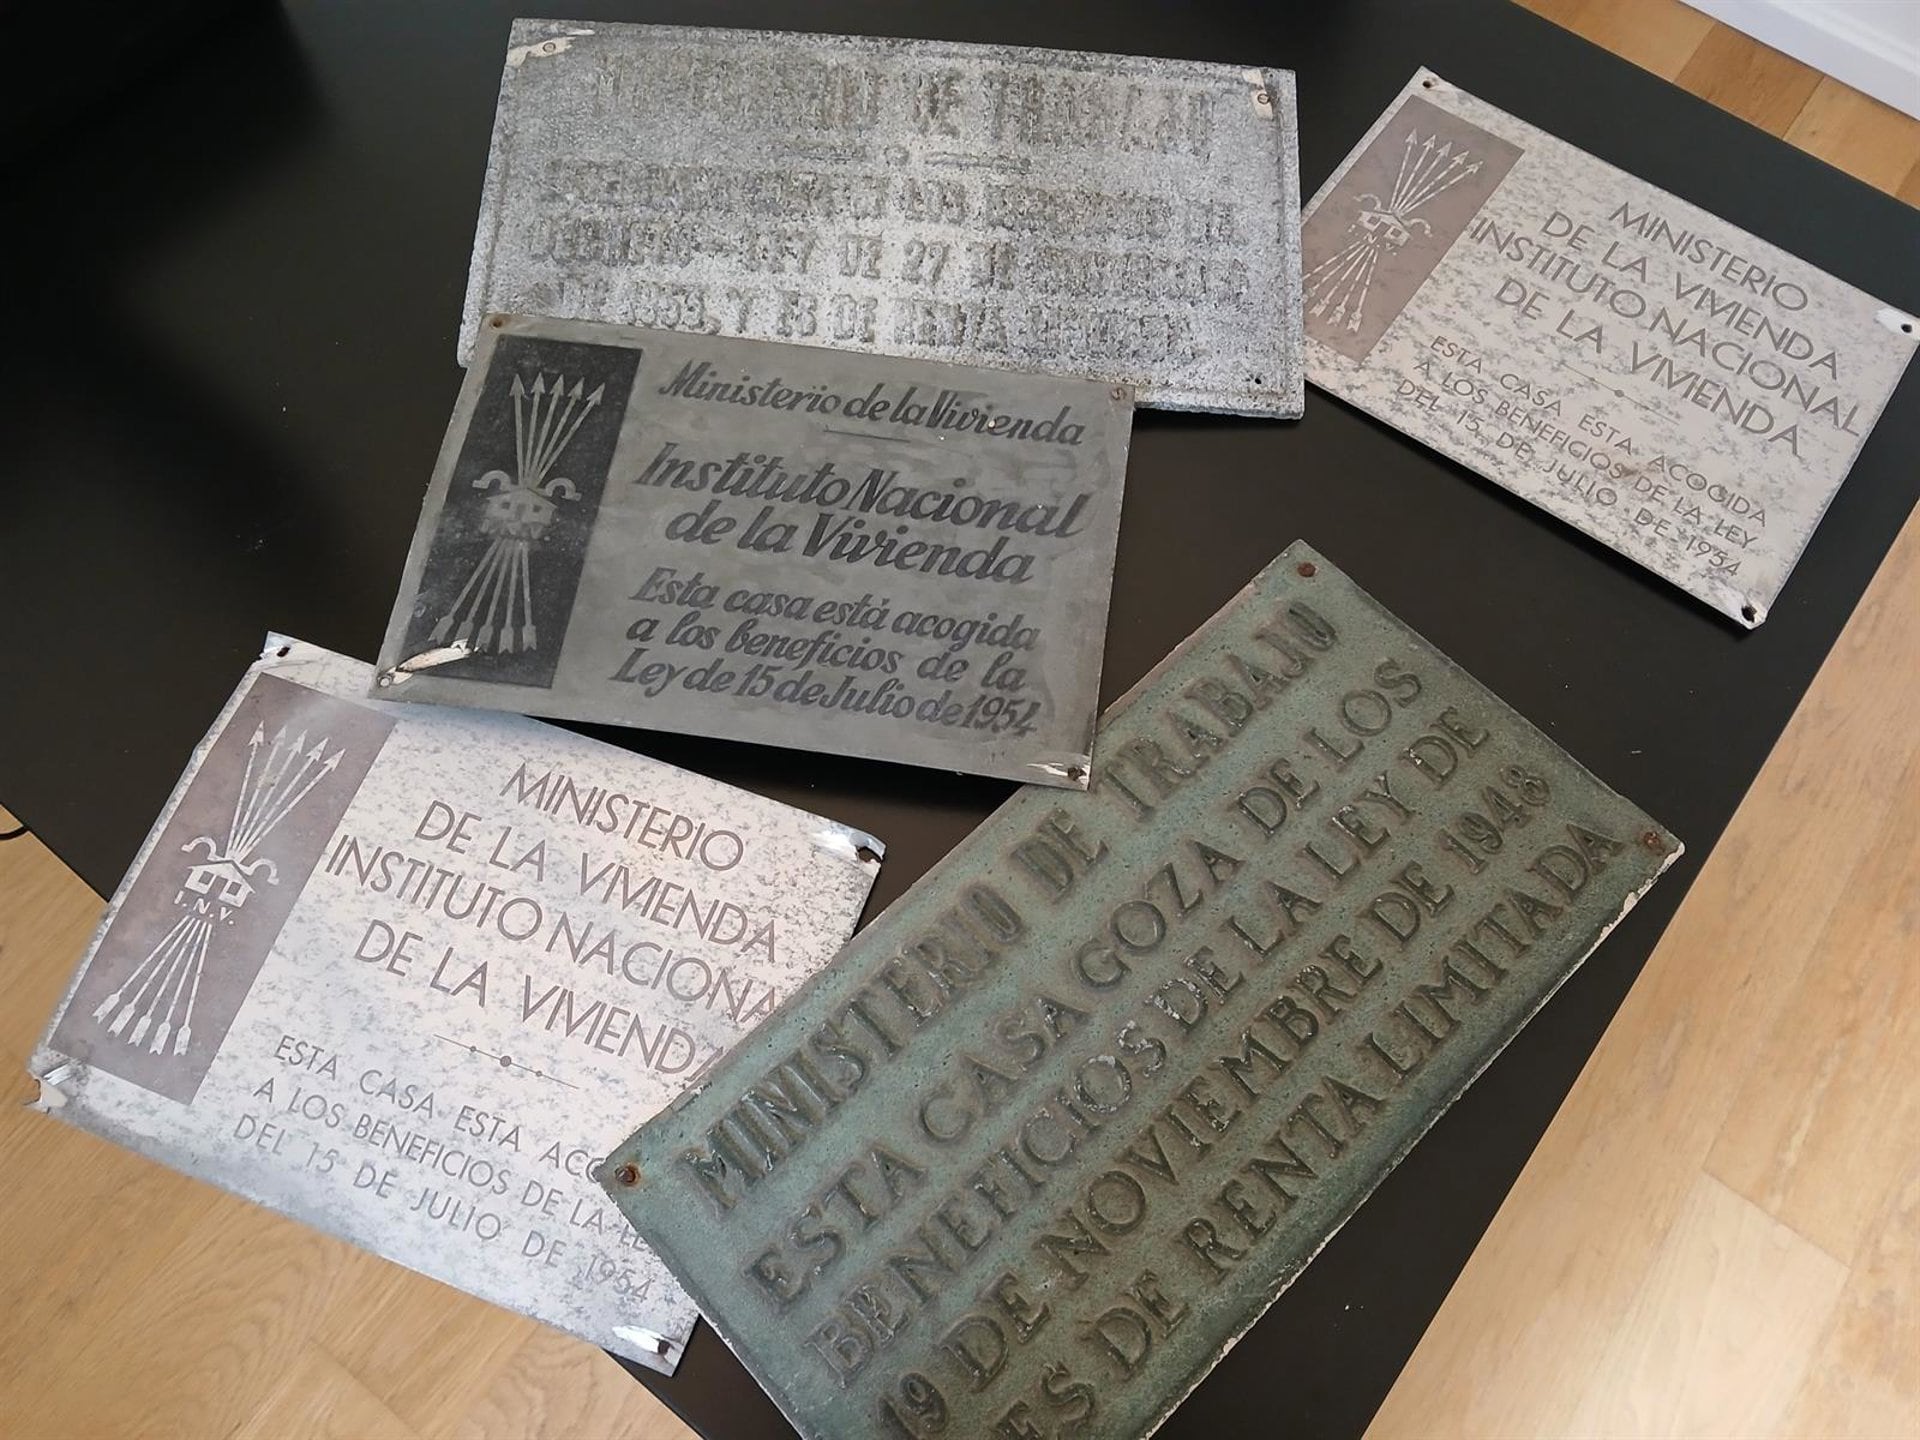 MINISTERIO DE TRABAJO
LOS BENEFICIOS DEL
DECRETO-LEY DE 27 DE NOVIEMBRE
DE 1953, Y ES DE RENTA LIMITADA
MINISTERIO
DE LA VIVIENDA
INSTITUTO NACIONAL
DE LA VIVIENDA
ESTA CASA ESTA ACOGIDA
A LOS BENEFICIOS DE LA LEY
DEL 15 DE JULIO DE 1954
Ministerio de la Vivienda
Instituto Nacional
de la Vivienda
Esta casa está acogida
a los beneficios de la
Ley de 15 de Julio de 1954
I.N.V.
MINISTERIO
DE LA VIVIENDA
INSTITUTO NACIONA
DE LA VIVIENDA
ESTA CASA ESTA ACO
A LOS BENEFICIOS DE LA LE
DEL 15 DE JULIO DE 1954
MINISTERIO DE TRABAJO
ESTA CASA GOZA DE LOS
BENEFICIOS DE LA LEY DE
19 DE NOVIEMBRE DE 1948
ES DE RENTA LIMITADA